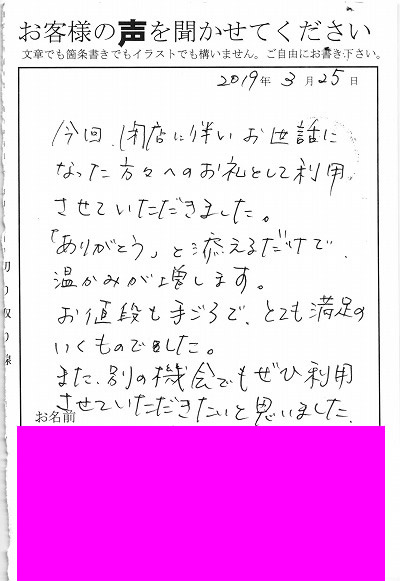 お客様の声を聞かせてください
文章でも箇条書きでもイラストでも構いません。ご自由にお書き下さい。
2019年 3月 25日
今回、閉店に伴いお世話に
なった方々へのお礼として利用
させていただきました。
「ありがとう」と添えるだけで、
温かみが増します。
お値段も手ごろで、とても満足の
いくものでした。
また、別の機会でもぜひ利用
させていただきたいと思いました。
お名前
切り取り線